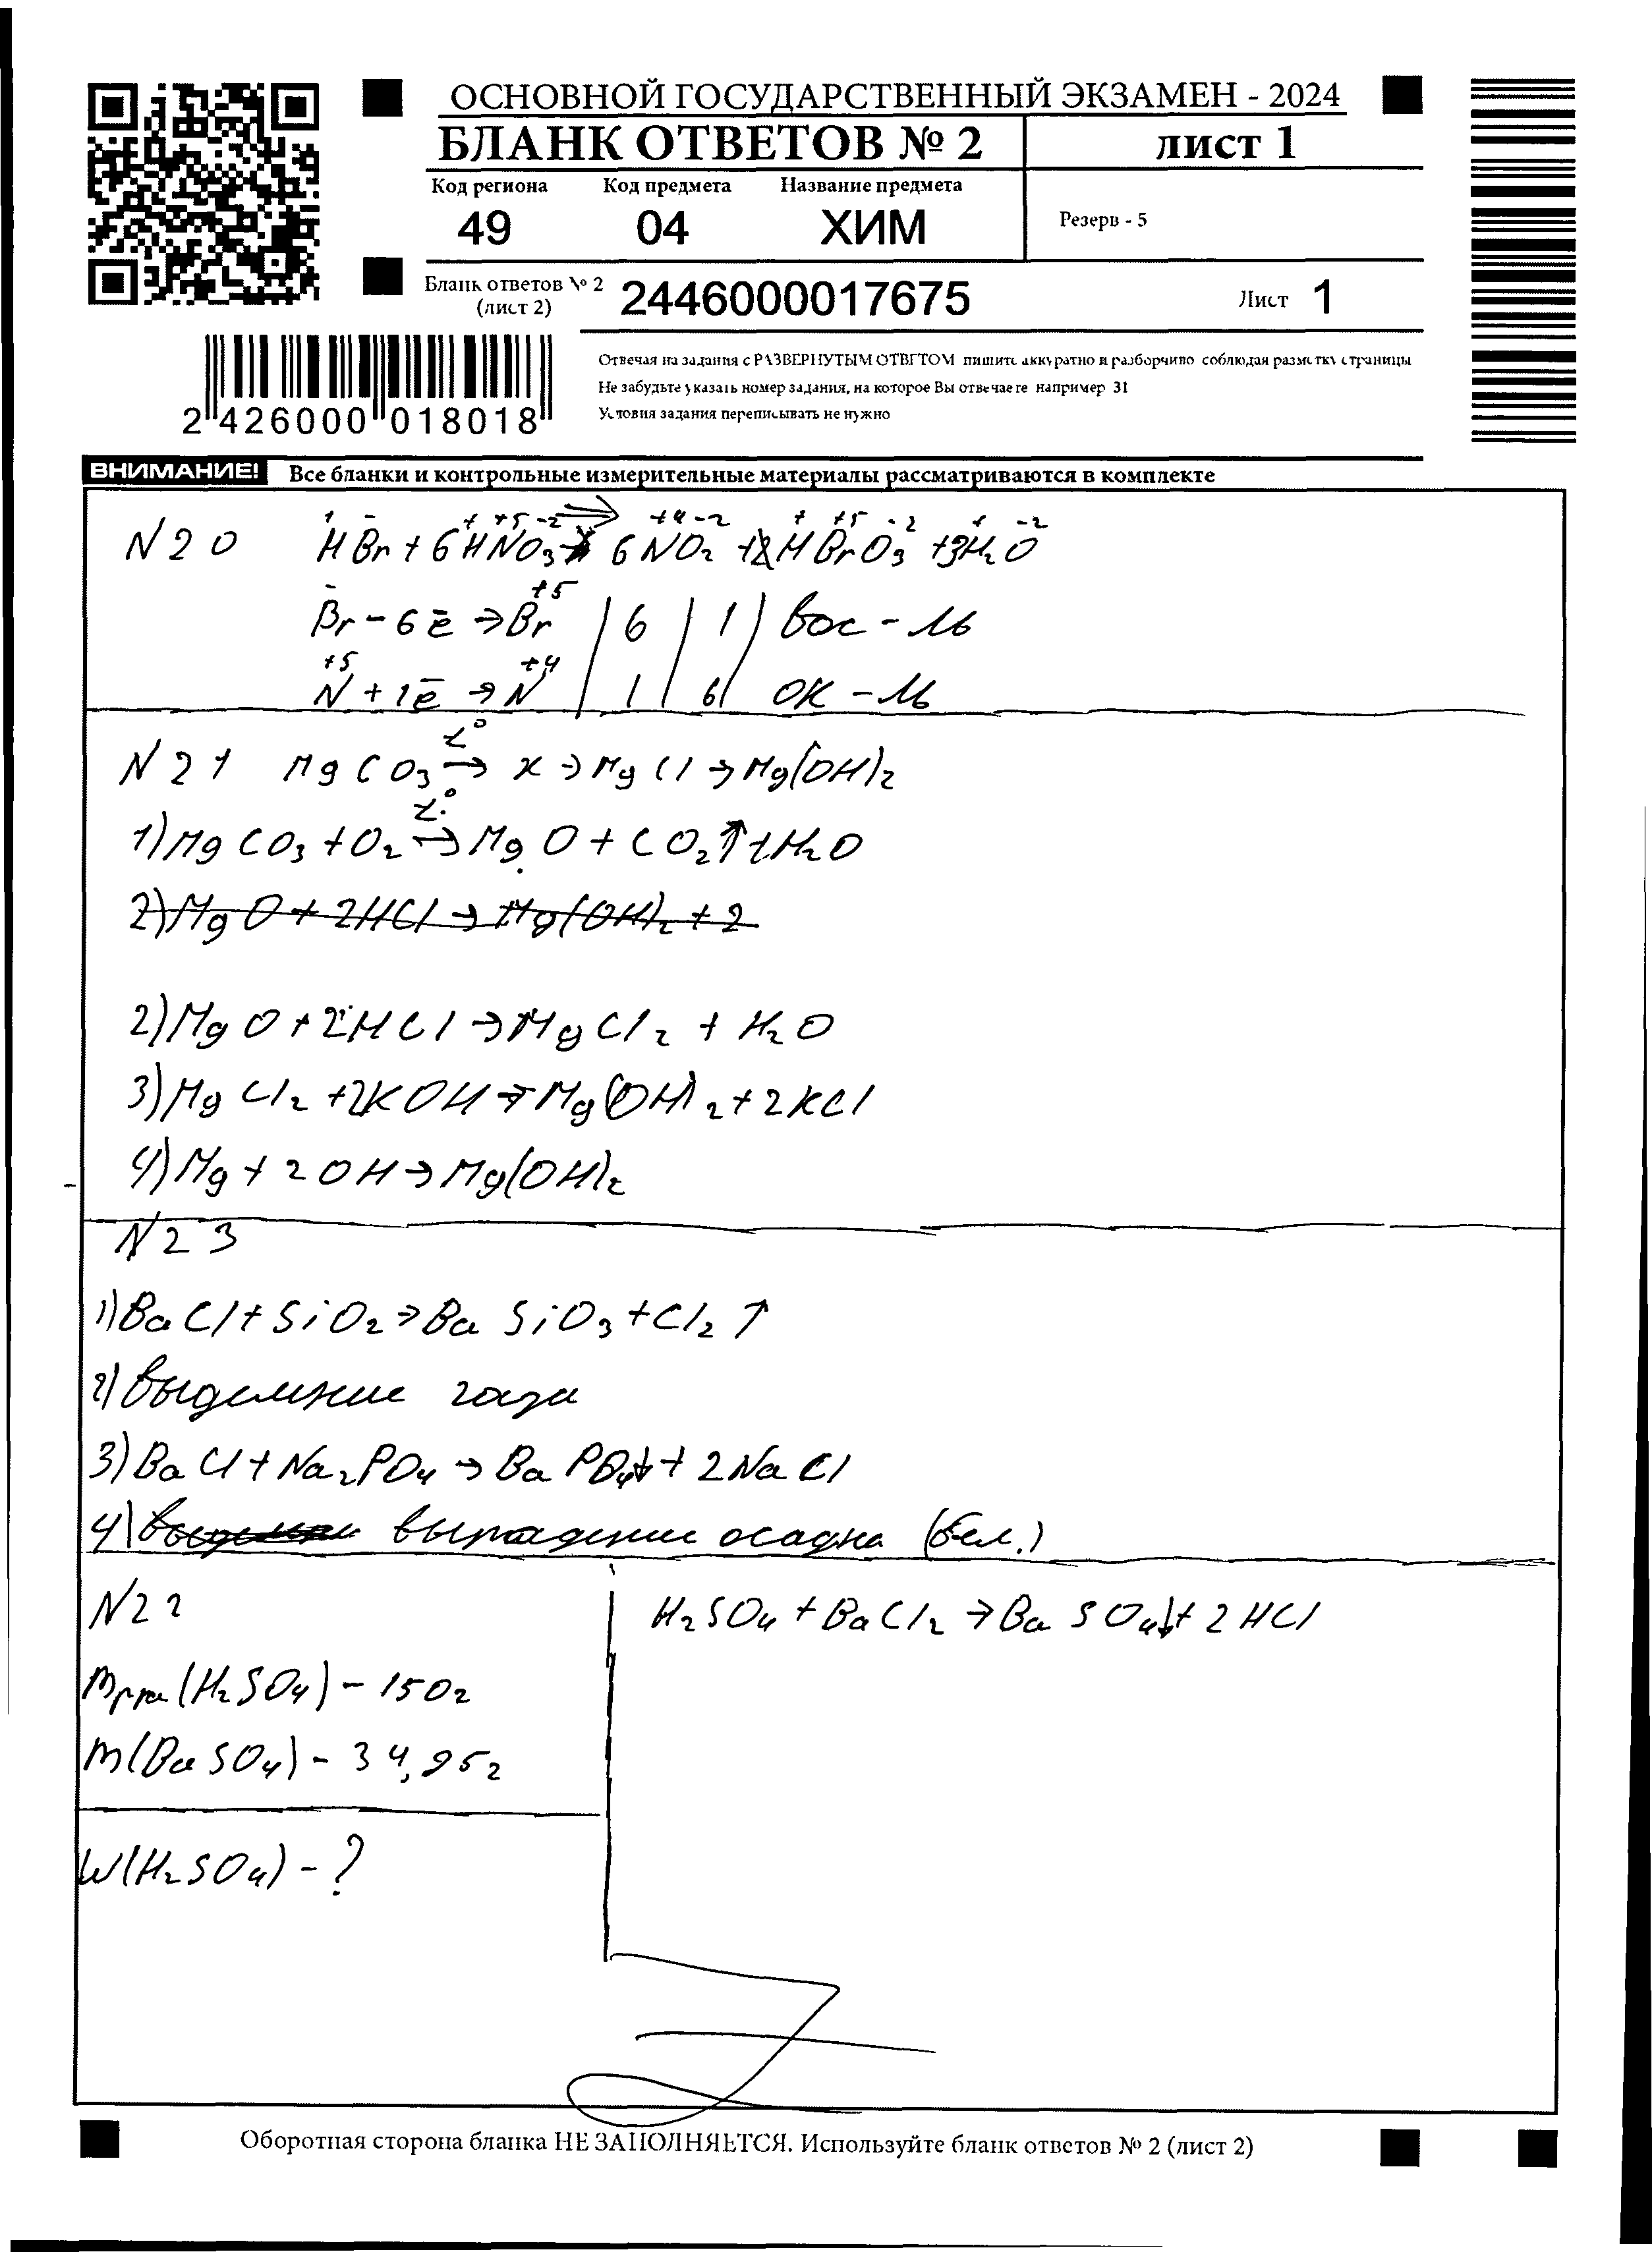 ОСНОВНОЙ ГОСУДАРСТВЕННЫЙ ЭКЗАМЕН - 2024
БЛАНК ОТВЕТОВ № 2 лист 1
Код региона Код предмета Название предмета
49 04 ХИМ Резерв - 5
Бланк ответов № 2 (лист 2) 2446000017675 Лист 1
Отвечая на задания с РАЗВЕРНУТЫМ ОТВЕТОМ пишите аккуратно и разборчиво соблюдая разметку страницы
Не забудьте указать номер задания, на которое Вы отвечаете например 31
Условия задания переписывать не нужно
2 426000 018018
ВНИМАНИЕ! Все бланки и контрольные измерительные материалы рассматриваются в комплекте
+ - + +5 -2 +4 -2 + +5 -2 + -2
N20 HBr + 6HNO₃ → 6NO₂ + HBrO₃ + 3H₂O
Br⁻ - 6ē → Br⁺⁵ | 6 | 1 | вос-ль
N⁺⁵ + 1ē → N⁺⁴ | 1 | 6 | ок-ль
N21 MgCO₃ t°→ x → MgCl → Mg(OH)₂
1) MgCO₃ + O₂ t°→ MgO + CO₂↑ + H₂O
2) MgO + 2HCl → Mg(OH)₂ + 2
2) MgO + 2HCl → MgCl₂ + H₂O
3) MgCl₂ + 2KOH → Mg(OH)₂ + 2KCl
4) Mg + 2OH → Mg(OH)₂
N23
1) BaCl + SiO₂ → BaSiO₃ + Cl₂↑
2) выделение газа
3) BaCl + Na₂PO₄ → BaPO₄↓ + 2NaCl
4) выпадение осадка (бел.)
N22
H₂SO₄ + BaCl₂ → BaSO₄↓ + 2HCl
m р-ра (H₂SO₄) - 150г
m(BaSO₄) - 34,95г
W(H₂SO₄) - ?
Оборотная сторона бланка НЕ ЗАПОЛНЯЕТСЯ. Используйте бланк ответов № 2 (лист 2)